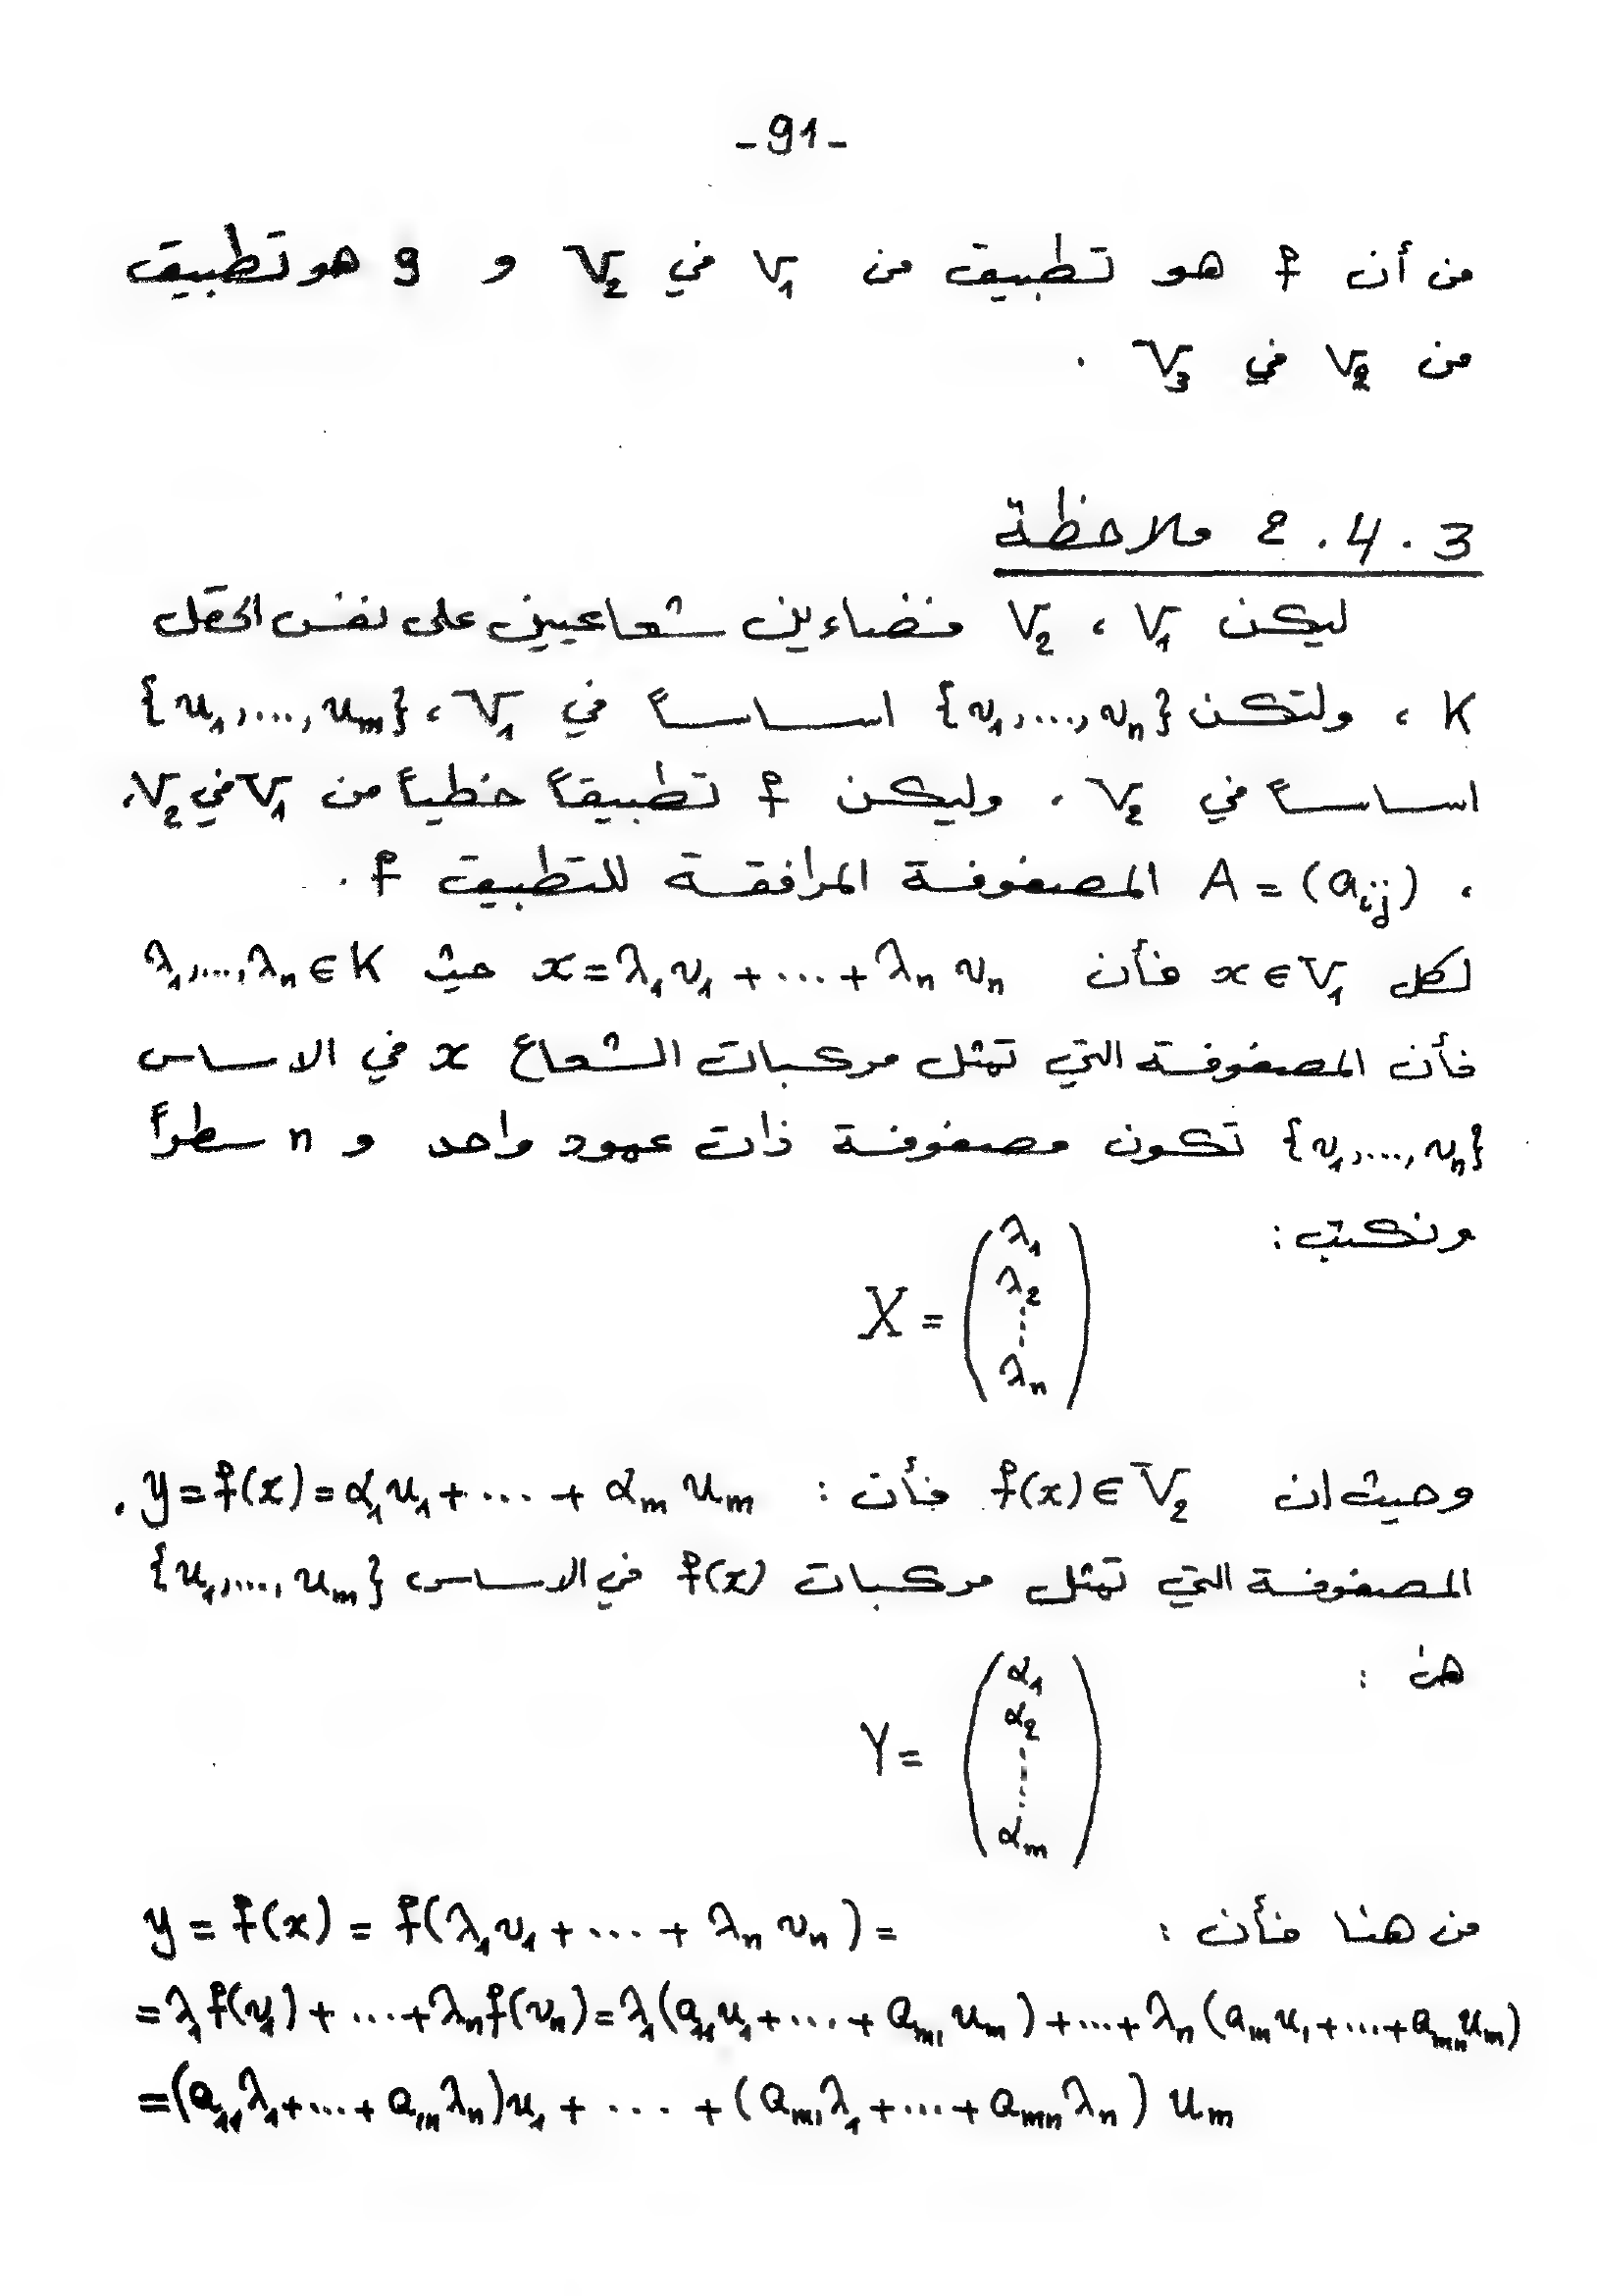 -91-
من أن f هو تطبيق من V₁ في V₂ و g هو تطبيق
من V₂ في V₃ .
2.4.3 ملاحظة
ليكن V₁ ، V₂ فضاءين شعاعيين على نفس الحقل
K ، ولتكن {v₁,...,vₙ} اساساً في V₁ ، {u₁,...,uₘ}
اساساً في V₂ . وليكن f تطبيقاً خطياً من V₁ في V₂ ،
، A = (aᵢⱼ) المصفوفة المرافقة للتطبيق f .
لكل x ∈ V₁ فأن x = λ₁v₁ + ... + λₙvₙ حيث λ₁,...,λₙ ∈ K
فأن المصفوفة التي تمثل مركبات الشعاع x في الاساس
{v₁,...,vₙ} تكون مصفوفة ذات عمود واحد و n سطراً
ونكتب :
X = (λ₁ λ₂ ⋮ λₙ)
وحيث ان f(x) ∈ V₂ فأن : y = f(x) = α₁u₁ + ... + αₘuₘ .
المصفوفة التي تمثل مركبات f(x) في الاساس {u₁,...,uₘ}
هي :
Y = (α₁ α₂ ⋮ αₘ)
من هنا فأن : y = f(x) = f(λ₁v₁ + ... + λₙvₙ) =
= λ₁f(v₁) + ... + λₙf(vₙ) = λ₁(a₁₁u₁ + ... + aₘ₁uₘ) + ... + λₙ(a₁ₙu₁ + ... + aₘₙuₘ)
= (a₁₁λ₁ + ... + a₁ₙλₙ)u₁ + ... + (aₘ₁λ₁ + ... + aₘₙλₙ)uₘ